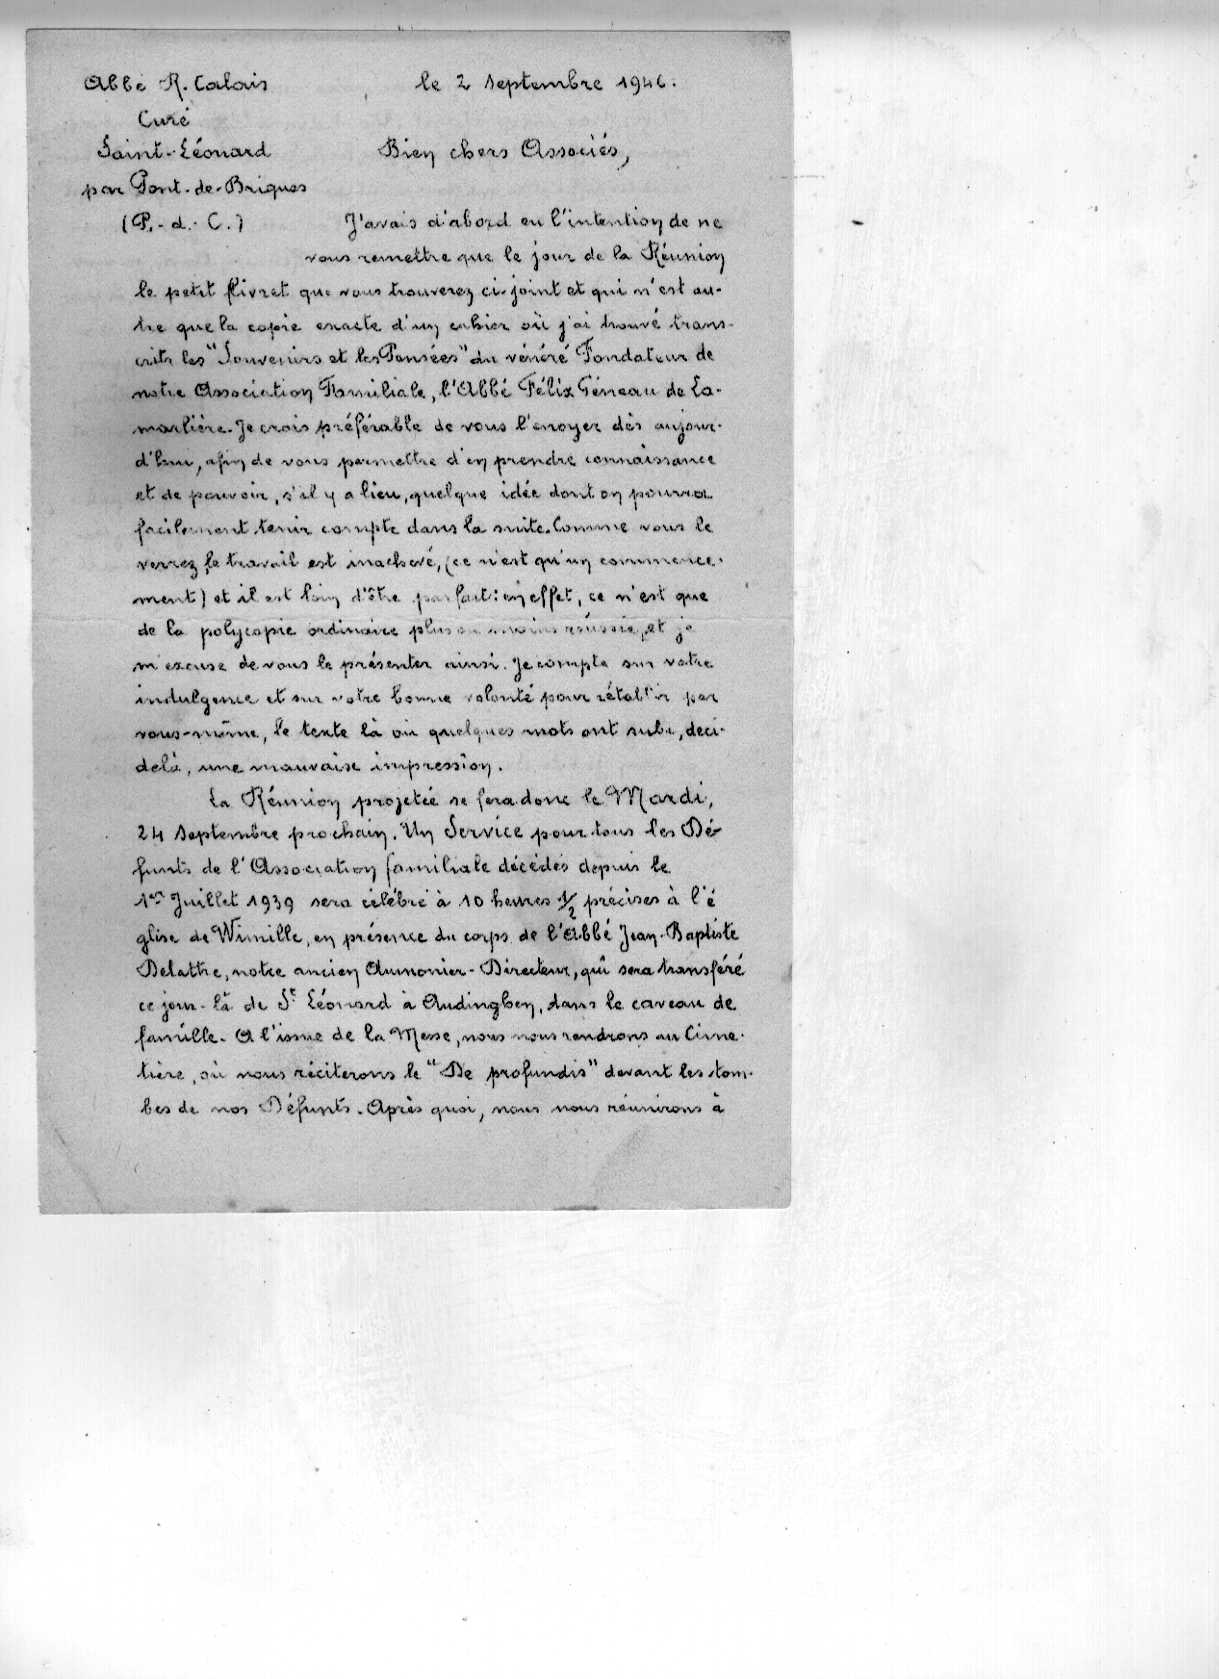 Abbé R. Calais
Curé
Saint-Léonard
par Pont-de-Briques
(P.-d.-C.)
le 2 septembre 1946.
Bien chers Associés,
J'avais d'abord eu l'intention de ne
vous remettre que le jour de la Réunion
le petit livret que vous trouverez ci-joint et qui n'est au-
tre que la copie exacte d'un cahier où j'ai trouvé trans-
crits les "Souvenirs et les Pensées" du vénéré Fondateur de
notre Association Familiale, l'Abbé Félix Géneau de La-
marlière. Je crois préférable de vous l'envoyer dès aujour-
d'hui, afin de vous permettre d'en prendre connaissance
et de pouvoir, s'il y a lieu, quelque idée dont on pourra
facilement tenir compte dans la suite. Comme vous le
verrez, le travail est inachevé, (ce n'est qu'un commence-
ment) et il est loin d'être parfait: en effet, ce n'est que
de la polycopie ordinaire plus ou moins réussie, et je
m'excuse de vous le présenter ainsi. Je compte sur votre
indulgence et sur votre bonne volonté pour rétablir par
vous-même, le texte là où quelques mots ont subi, deci-
delà, une mauvaise impression.
La Réunion projetée se fera donc le Mardi,
24 septembre prochain. Un Service pour tous les Dé-
funts de l'Association familiale décédés depuis le
1er Juillet 1939 sera célébré à 10 heures 1/2 précises à l'é
glise de Wimille, en présence du corps de l'Abbé Jean-Baptiste
Delattre, notre ancien Aumonier-Directeur, qui sera transféré
ce jour-là de St Léonard à Audinghen, dans le caveau de
famille. A l'issue de la Messe, nous nous rendrons au Cime-
tière, où nous réciterons le "De profundis" devant les tom-
bes de nos Défunts. Après quoi, nous nous réunirons à